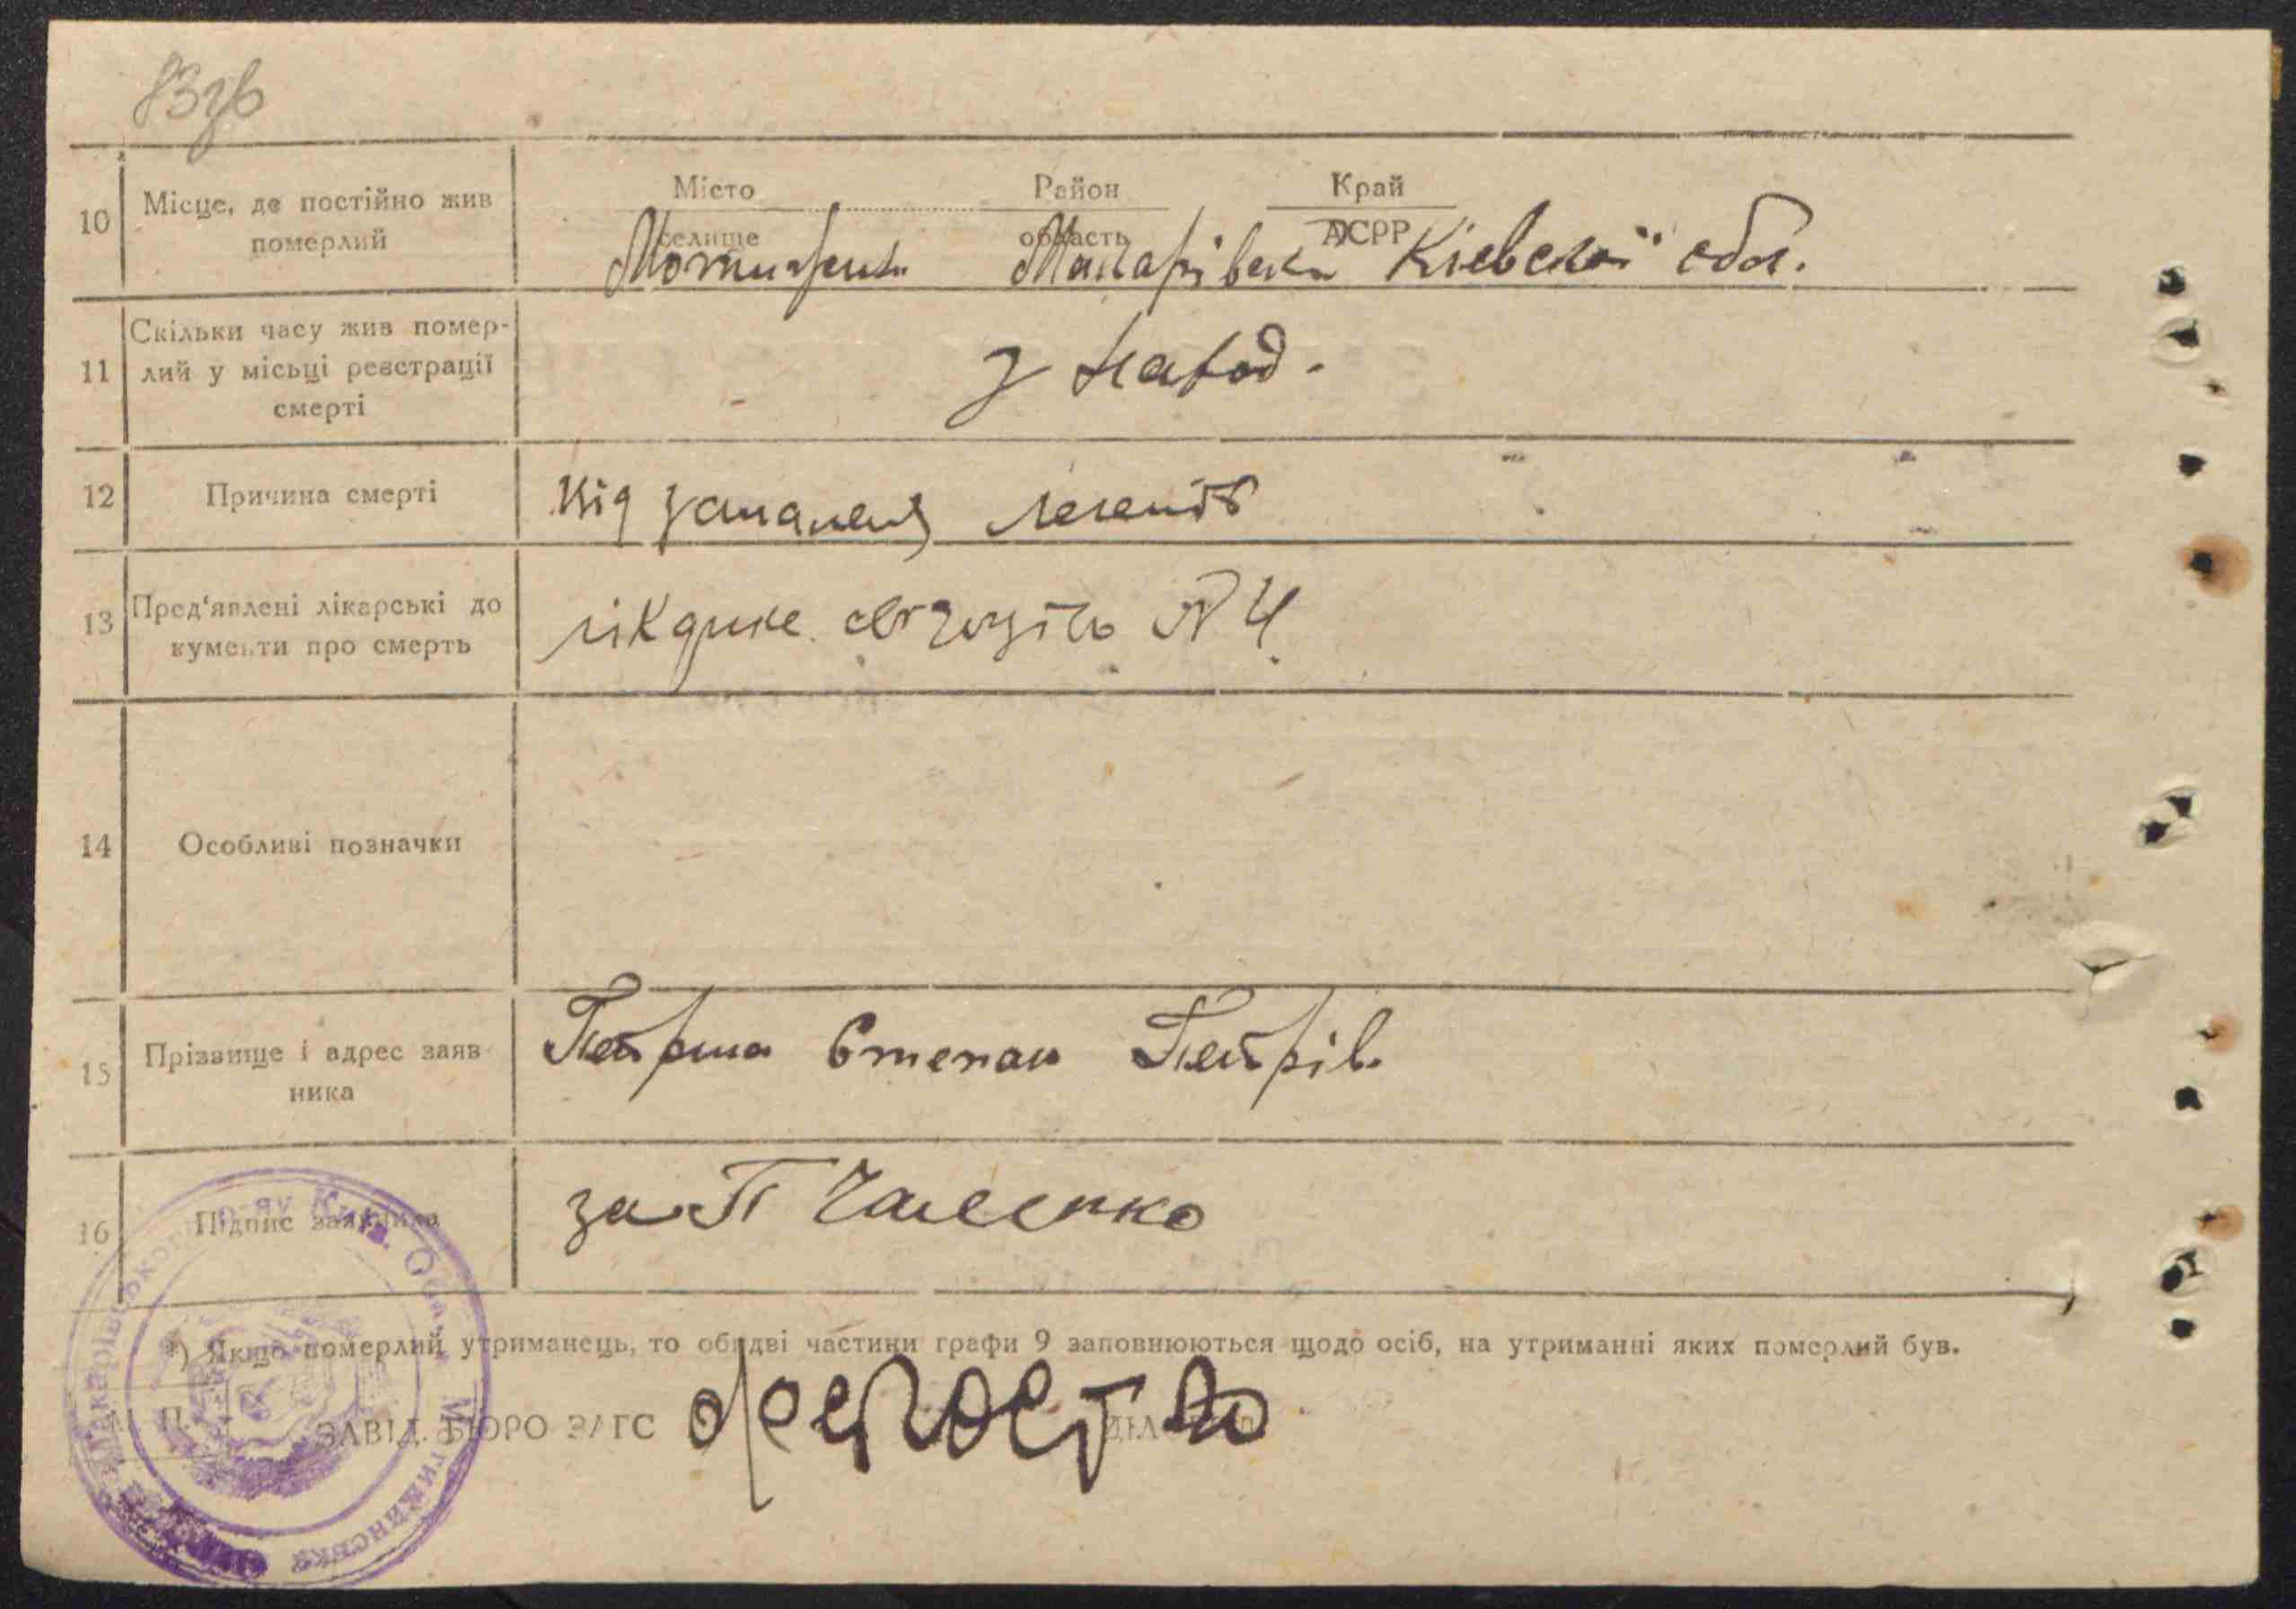 10 Місце, де постійно жив померлий
Місто Район Край
селище область АСРР
Мотижин Макарівськ Кіевскої обл.
11 Скільки часу жив помер-
лий у місьці реєстрації
смерті
з народ.
12 Причина смерті
від запаленя легенів
13 Пред'явлені лікарські до
кументи про смерть
№ 4
14 Особливі позначки
15 Прізвище і адрес заяв-
ника
Степан Петрів.
16 Підпис заявника
за П
*) Якщо померлий утриманець, то обидві частини графи 9 заповнюються щодо осіб, на утриманні яких померлий був.
ЗАВІД. БЮРО ЗАГС